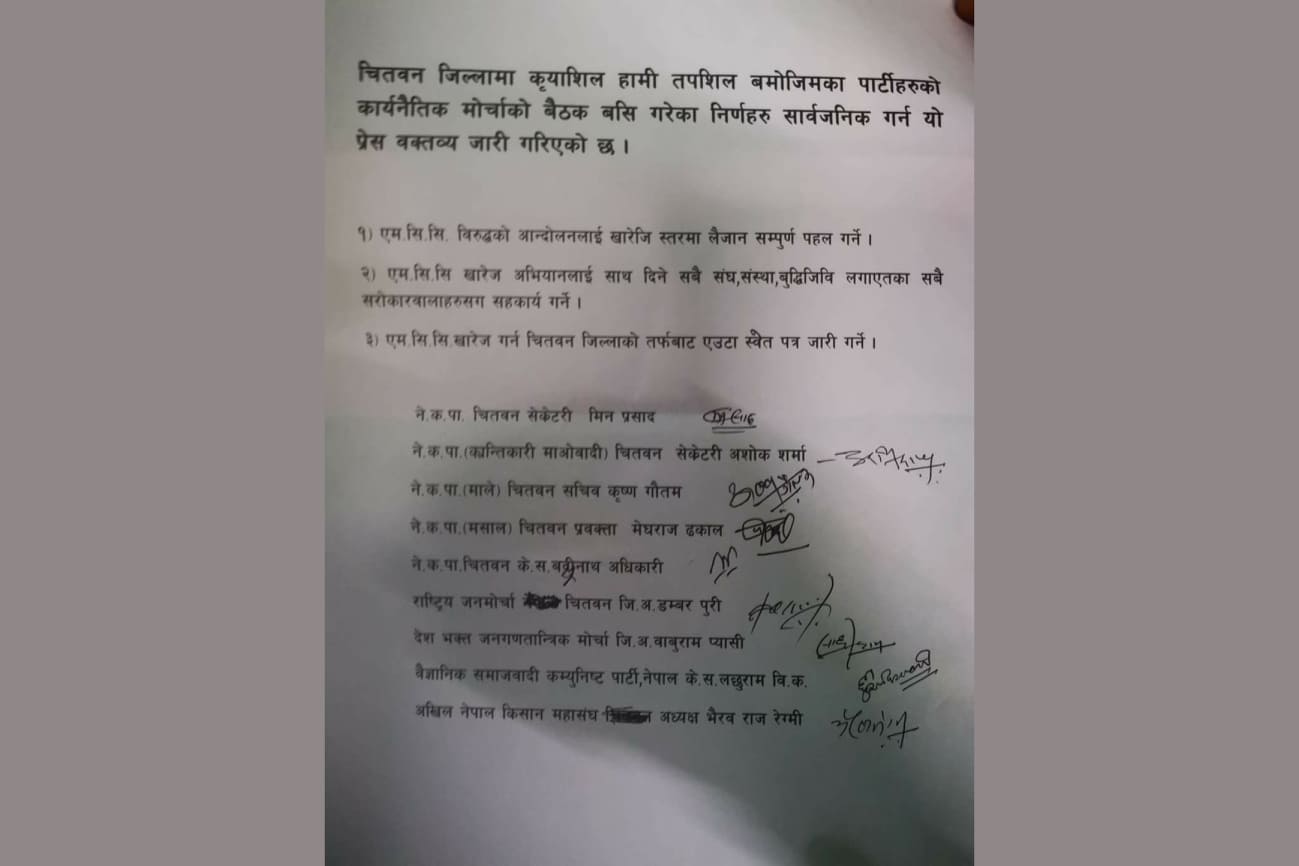 चितवन जिल्लामा कृयाशिल हामी तपशिल बमोजिमका पार्टीहरुको
कार्यनैतिक मोर्चाको बैठक बसि गरेका निर्णहरु सार्वजनिक गर्न यो
प्रेस वक्तव्य जारी गरिएको छ ।
१) एम.सि.सि. विरुद्धको आन्दोलनलाई खारेजि स्तरमा लैजान सम्पुर्ण पहल गर्ने ।
२) एम.सि.सि खारेज अभियानलाई साथ दिने सबै संघ,संस्था,बुद्धिजिवि लगाएतका सबै
सरोकारवालाहरुसग सहकार्य गर्ने ।
३) एम.सि.सि.खारेज गर्न चितवन जिल्लाको तर्फबाट एउटा स्वेत पत्र जारी गर्ने ।
ने.क.पा. चितवन सेकेटरी मिन प्रसाद
ने.क.पा.(क्रान्तिकारी माओवादी) चितवन सेकेटरी अशोक शर्मा
ने.क.पा.(माले) चितवन सचिव कृष्ण गौतम
ने.क.पा.(मसाल) चितवन प्रवक्ता मेघराज ढकाल
ने.क.पा.चितवन के.स.बद्रीनाथ अधिकारी
राष्ट्रिय जनमोर्चा चितवन जि.अ.डम्बर पुरी
देश भक्त जनगणतान्त्रिक मोर्चा जि.अ.वाबुराम प्यासी
वैज्ञानिक समाजवादी कम्युनिष्ट पार्टी,नेपाल के.स.लछुराम वि.क.
अखिल नेपाल किसान महासंघ अध्यक्ष भैरव राज रेग्मी